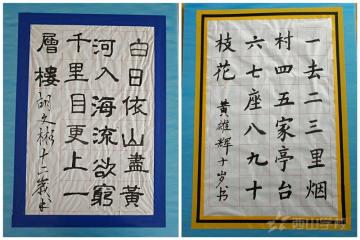 白日依山盡黄
河入海流欲窮
千里目更上一
層樓 胡文彬十二歲书
一去二三里烟
村四五家亭台
六七座八九十
枝花 黄雄辉十岁书
西山学校